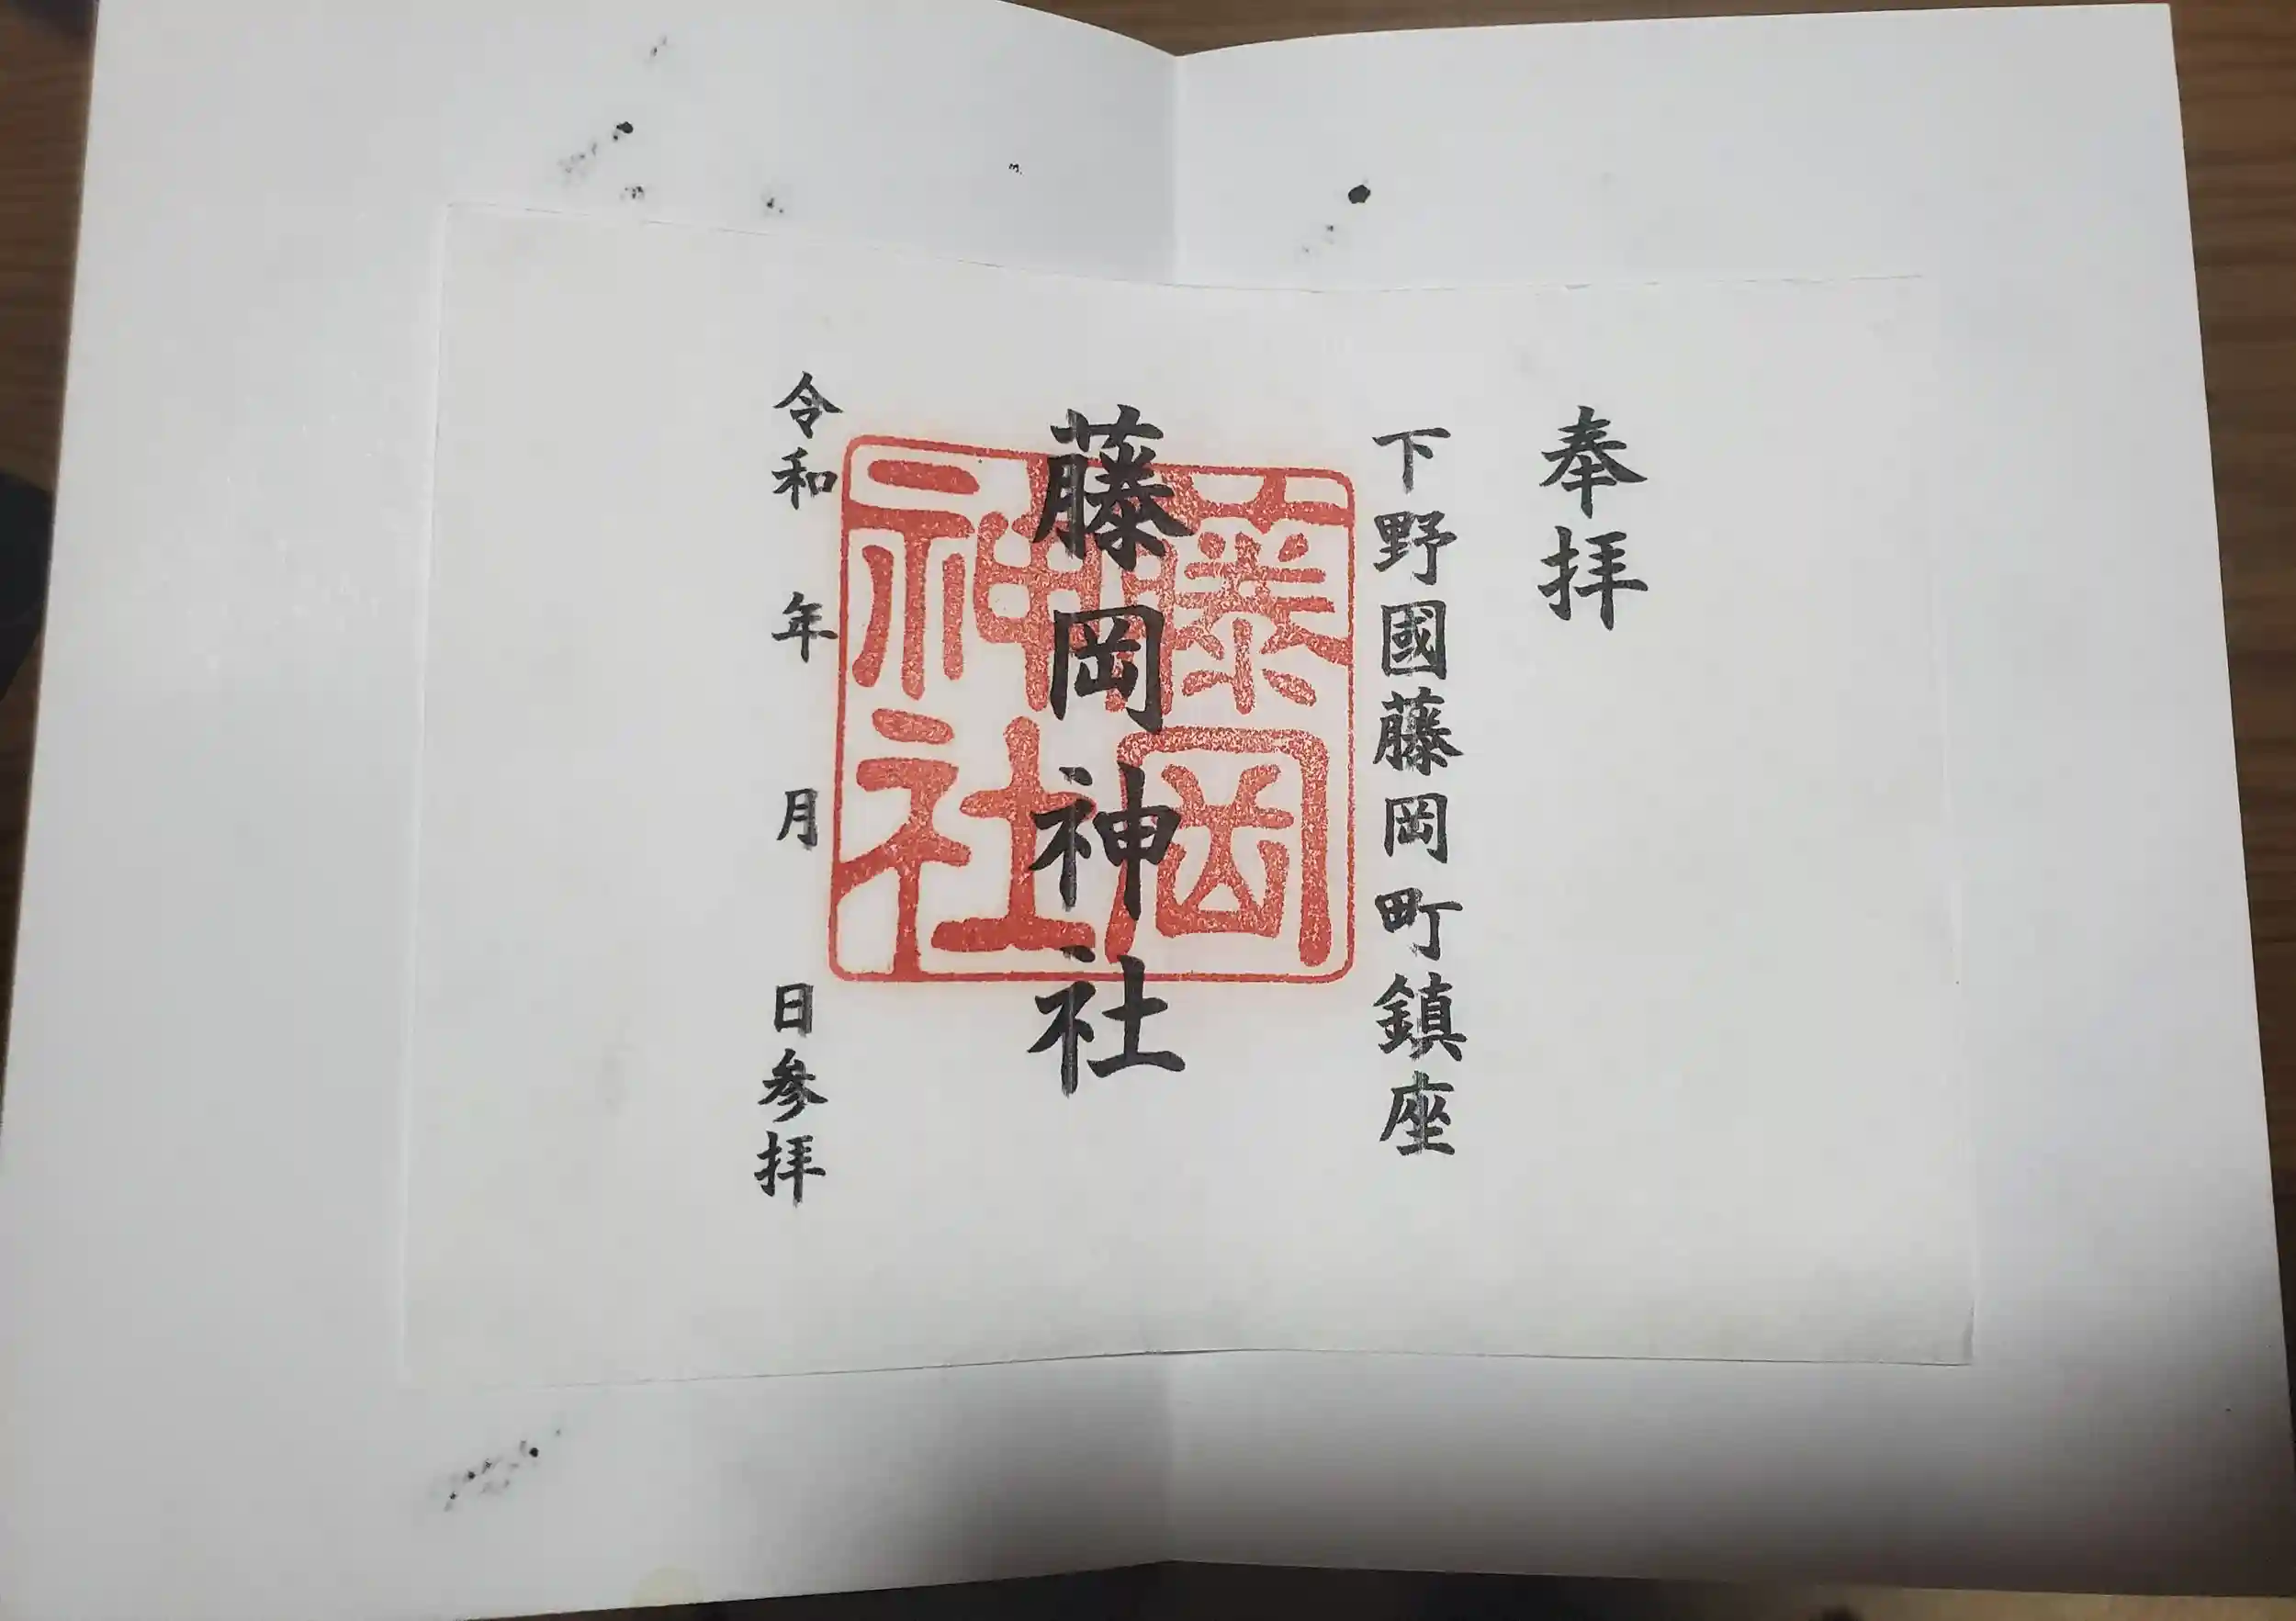 奉拝
下野國藤岡町鎮座
藤岡神社
藤岡
神社
令和 年 月 日参拝